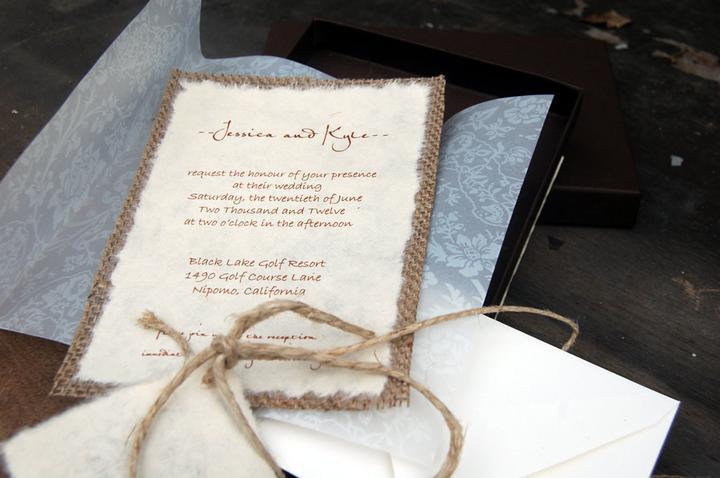 --Jessica and Kyle--
request the honour of your presence
at their wedding
Saturday, the twentieth of June
Two Thousand and Twelve
at two o'clock in the afternoon
Black Lake Golf Resort
1490 Golf Course Lane
Nipomo, California
join the reception